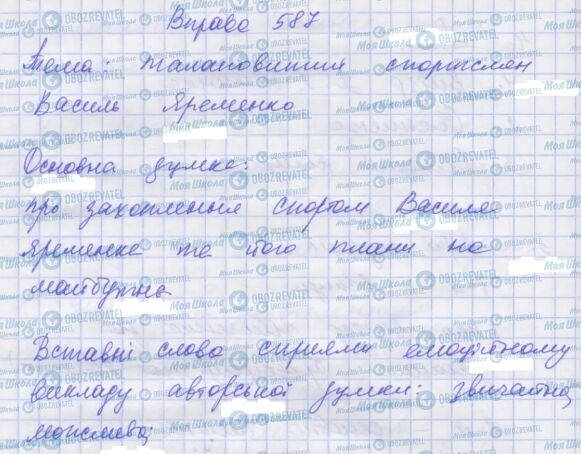 Вправа 587
Тема: талановитий спортсмен
Василь Яременко
Основна думка:
про захоплення спортом Василя
Яременка та його плани на
майбутнє
Вставні слова сприяли емоційному
викладу авторської думки: звичайно,
можливо;